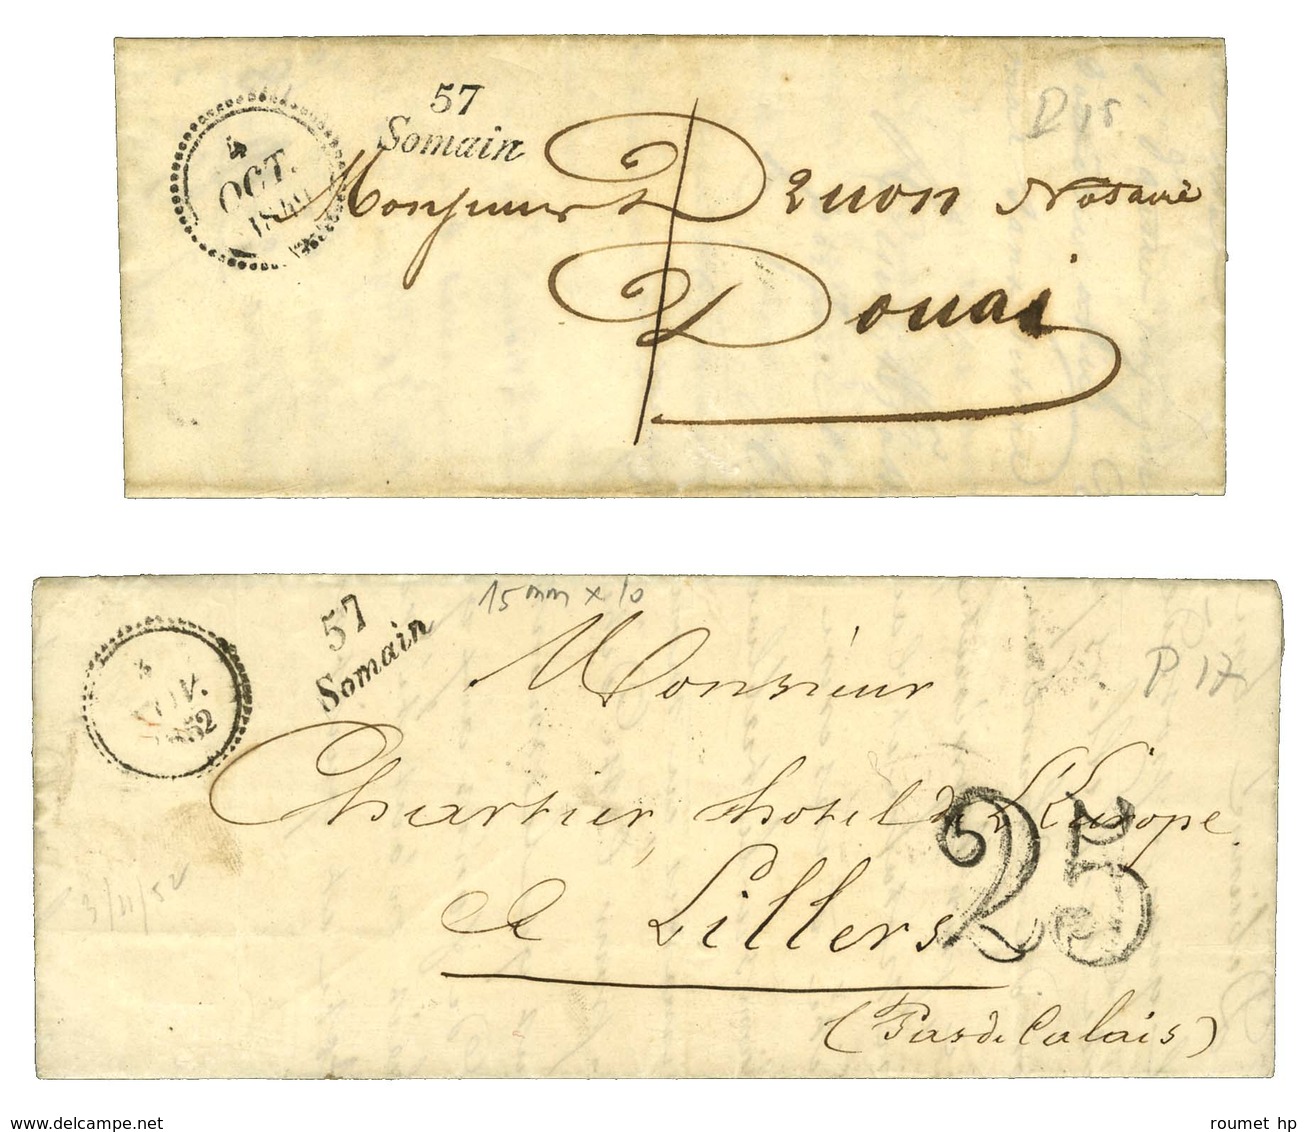 57
Somain
4
OCT.
D 15
Monsieur Denon Notaire
Douai
15 mm x 10
57
Somain
NOV.
1852
Monsieur
P 17
Chartier hotel de L'Europe
25
à Lillers
3/11/52
(Pas de Calais)
www.delcampe.net
roumet hp